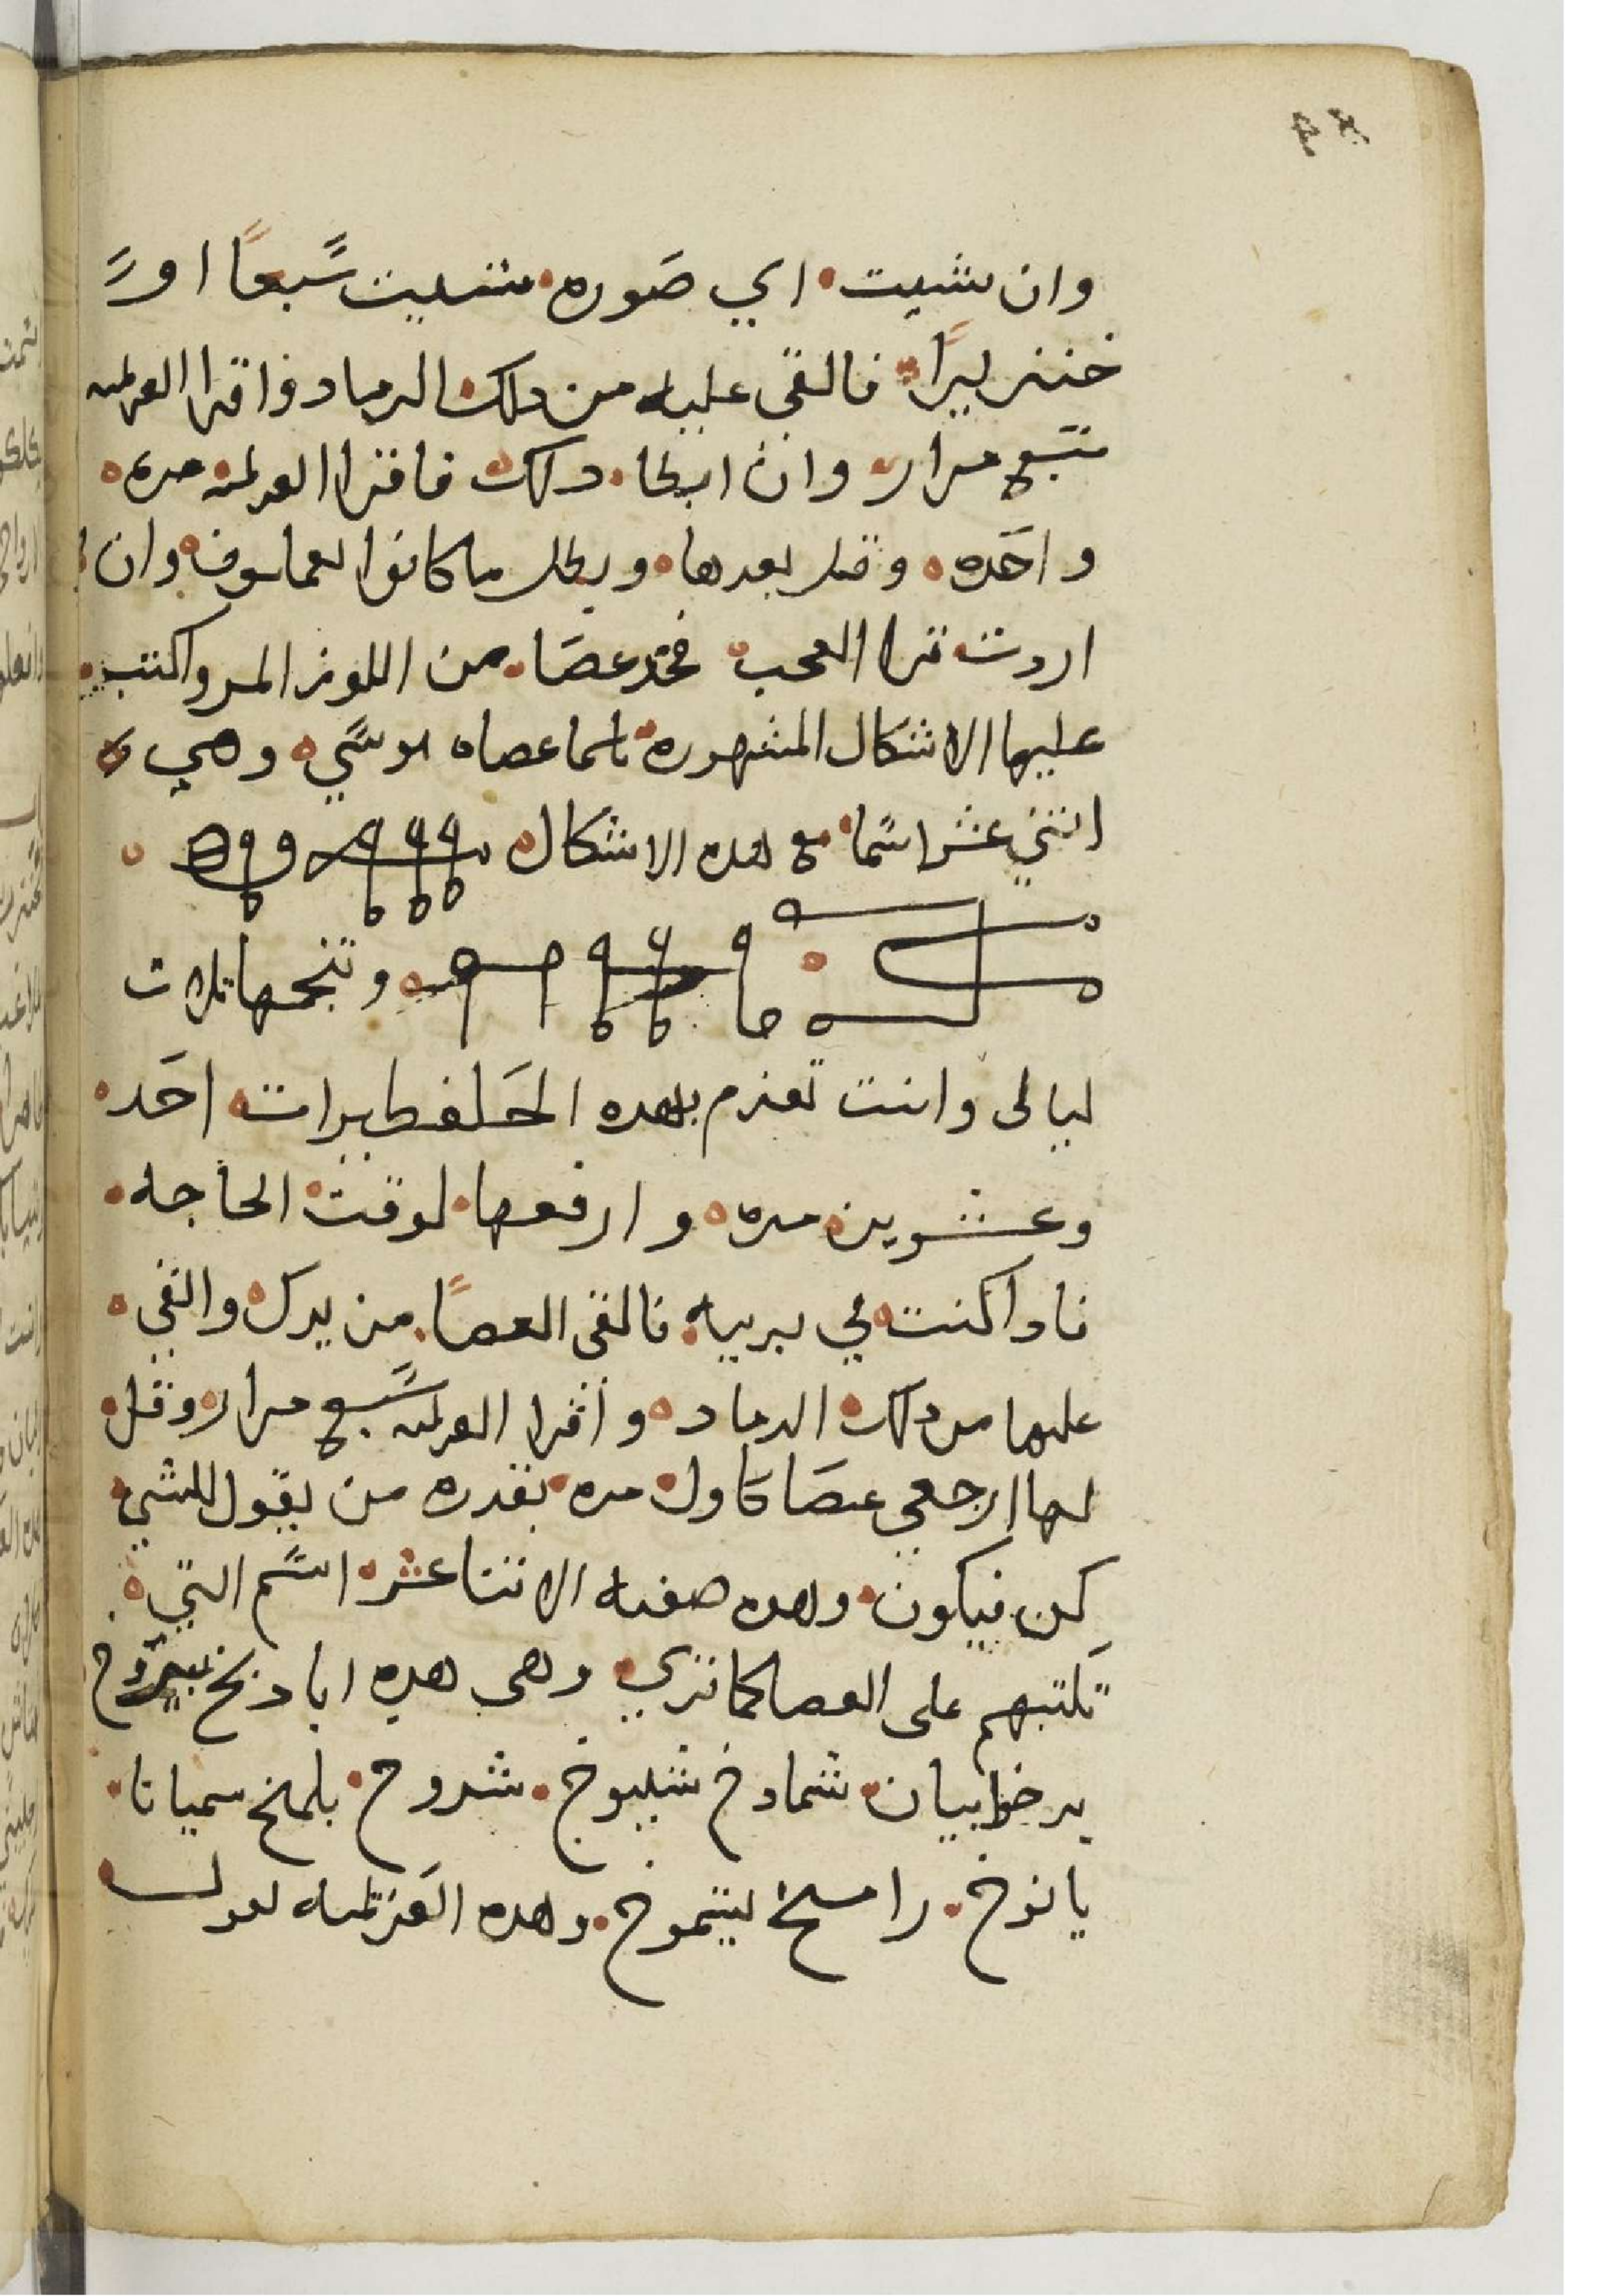 وان شيت اي صوره شيت سبعا او
خنزيرا فالقى عليه من دلك الرماد واقرا العزيمه
سبع مرار وان ابطا دلك فاقرا العزيمه مره
واحده وقل بعدها وبطل ما كانوا يعملون وان
اردت ترا العجب فخد عصا من اللوز المر واكتب
عليها الاشكال المشهوره باسما عصاه موسي وهي
اتني عشر اسما مع هده الاشكال
وتنجمها تلات
ليالى وانت تعزم بهده الحلفطيرات احد
وعشرين مره وارفعها لوقت الحاجه
فادا كنت في بريه فالقى العصا من يدك والقي
عليها من دلك الرماد واقرا العزيمه سبع مرار وقل
لها ارجعي عصا كاول مره بقدره من يقول للشي
كن فيكون وهده صفه الاتنا عشر اسم التي
تكتبهم على العصا كما تري وهى هده اباديخ
برخوا بيان شمادخ شليوخ شروخ بلملخ سميانا
يانوخ رامسلخ ليتموخ وهده العزيمه تقول